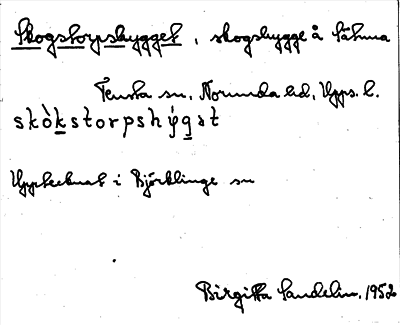 Skogstorpshygget, skogshygge å Låhma
Tensta sn, Norunda hd, Upps. l.
skòkstorpshýgət
Upptecknat i Björklinge sn
Birgitta Sandelin, 1952